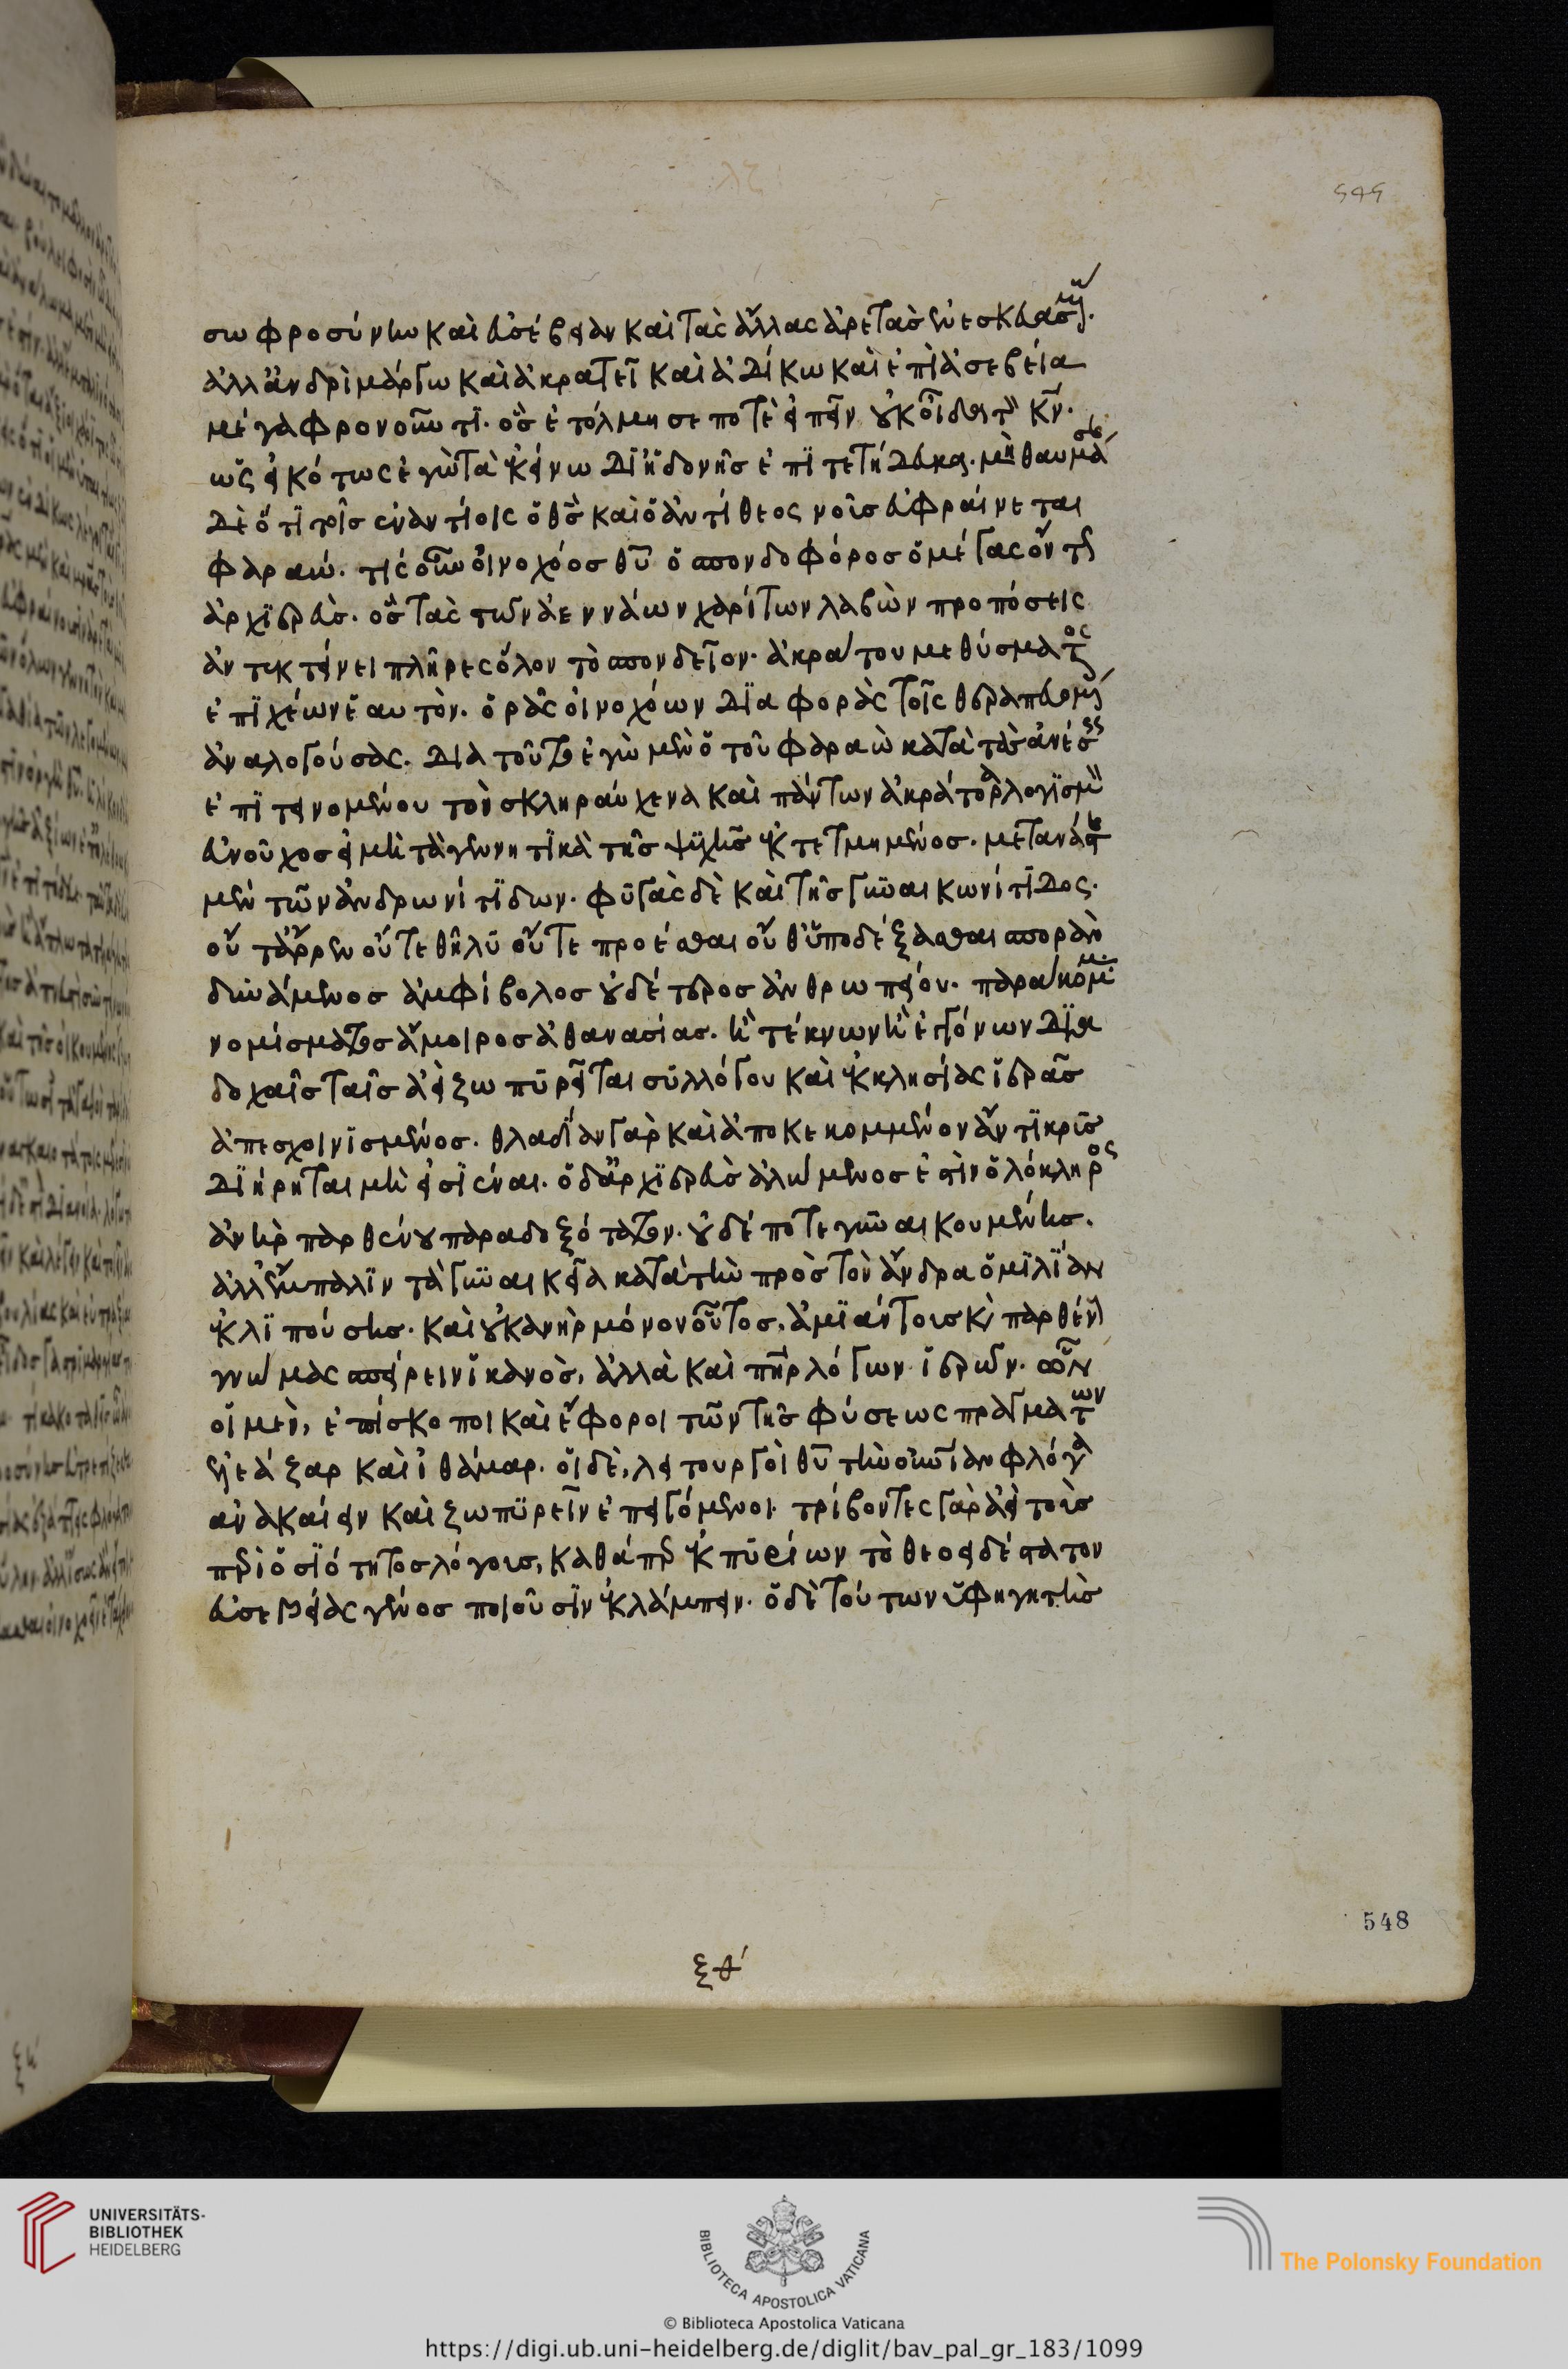 545
σωφροσύνην καὶ εὐσέβειαν καὶ τὰς ἄλλας ἀρετὰς ἐνεσκευασμ
ἀλλ' ἀνδρὶ μάργω καὶ ἀκρατεῖ καὶ ἀδίκω καὶ ἐπ' ἀσεβεία
μέγα φρονοῦντι. ὃς ἐτόλμησέ ποτε εἰπεῖν οὐκ οἶδα τὸν κν.
ὡς εἰκότως ἐγὼ τὰ ἐκείνω δι' ἡδονῆς ἐπιτετήδευκα. μὴ θαυμάσης
δὲ ὅτι τοῖς ἐναντίοις ὁ θς καὶ ὁ ἀντίθεος νοῦς εὐφραίνεται
φαραώ. τίς οὖν οἰνοχόος θυ ὁ σπονδοφόρος ὁ μέγας ὄντως
ἀρχιερεύς. ὃς τὰς τῶν ἀεννάων χαρίτων λαβὼν προπόσεις
ἀντεκτίνει πλῆρες ὅλον τὸ σπονδεῖον. ἀκράτου μεθύσματος
ἐπιχέων ἑαυτόν. ὁρᾶς οἰνοχόων διαφορὰς τοῖς θεραπευομένοις
ἀναλογούσας. διὰ τοῦτο ἐγὼ μὲν ὁ τοῦ φαραὼ κατὰ τὰς ἀνέσεις
ἐπιτεινομένου τὸν σκληραύχενα καὶ πάντων ἀκράτορα λογισμὸν
εὐνοῦχος εἰμὶ τὰ γεννητικὰ τῆς ψυχῆς ἐκτετμημένος. μετανάστης
μὲν τῶν ἀνδρωνίτιδων. φυγὰς δὲ καὶ τῆς γυναικωνίτιδος.
οὔτ' ἄρρεν οὔτε θῆλυ οὔτε προέσθαι οὔθ' ὑποδέξασθαι σπορὰν
δυνάμενος ἀμφίβολος οὐδέτερος ἀνθρωπείου. παράκομμα
νομίσματος ἄμοιρος ἀθανασίας. ἣ τέκνων ἢ ἐγγόνων δια
δοχαῖς ταῖς ἀεὶ ζωπυρεῖται συλλόγου καὶ ἐκκλησίας ἱερᾶς
ἀπεσχοινισμένος. θλαδίαν γὰρ καὶ ἀποκεκομμένον ἄντικρυς
διείρηται μὴ εἰσιέναι. ὁ δ' ἀρχιερεὺς ἄλω μενος ἐστὶν ὁλόκληρος
ἀνὴρ παρθένου παραδοξότατον. οὐδέποτε γυναικουμένης.
ἀλλ' ἔμπαλιν τὰ γυναικεῖα κατὰ τὴν πρὸς τὸν ἄνδρα ὁμιλίαν
ἐκλιπούσης. καὶ οὐκ ἀνὴρ μόνον οὗτος. ἀμιάντους κ παρθένους
γνώμας σπείρειν ἱκανὸς, ἀλλὰ καὶ πηρ λόγων ἱερῶν. ὧν
οἱ μὲν, ἐπίσκοποι καὶ ἔφοροι τῶν τῆς φύσεως πραγμάτων
ἐλεάζαρ καὶ ἰθάμαρ. οἱ δὲ, λειτουργοὶ θυ τὴν οὐνίαν φλόγα
ἀνακαίειν καὶ ζωπυρεῖν ἐπειγόμενοι τρίβοντες γὰρ ἀεὶ τοὺς
περὶ ὁσιότητος λόγους, καθάπερ ἐκ πυρείων τὸ θεοειδέστατον
εὐσεβείας γένος ποιοῦσιν ἐκλάμπειν. ὁ δὲ τούτων ὑφηγητὴς
548
ξθ'
UNIVERSITÄTS-
BIBLIOTHEK
HEIDELBERG
BIBLIOTECA APOSTOLICA VATICANA
The Polonsky Foundation
© Biblioteca Apostolica Vaticana
https://digi.ub.uni-heidelberg.de/diglit/bav_pal_gr_183/1099